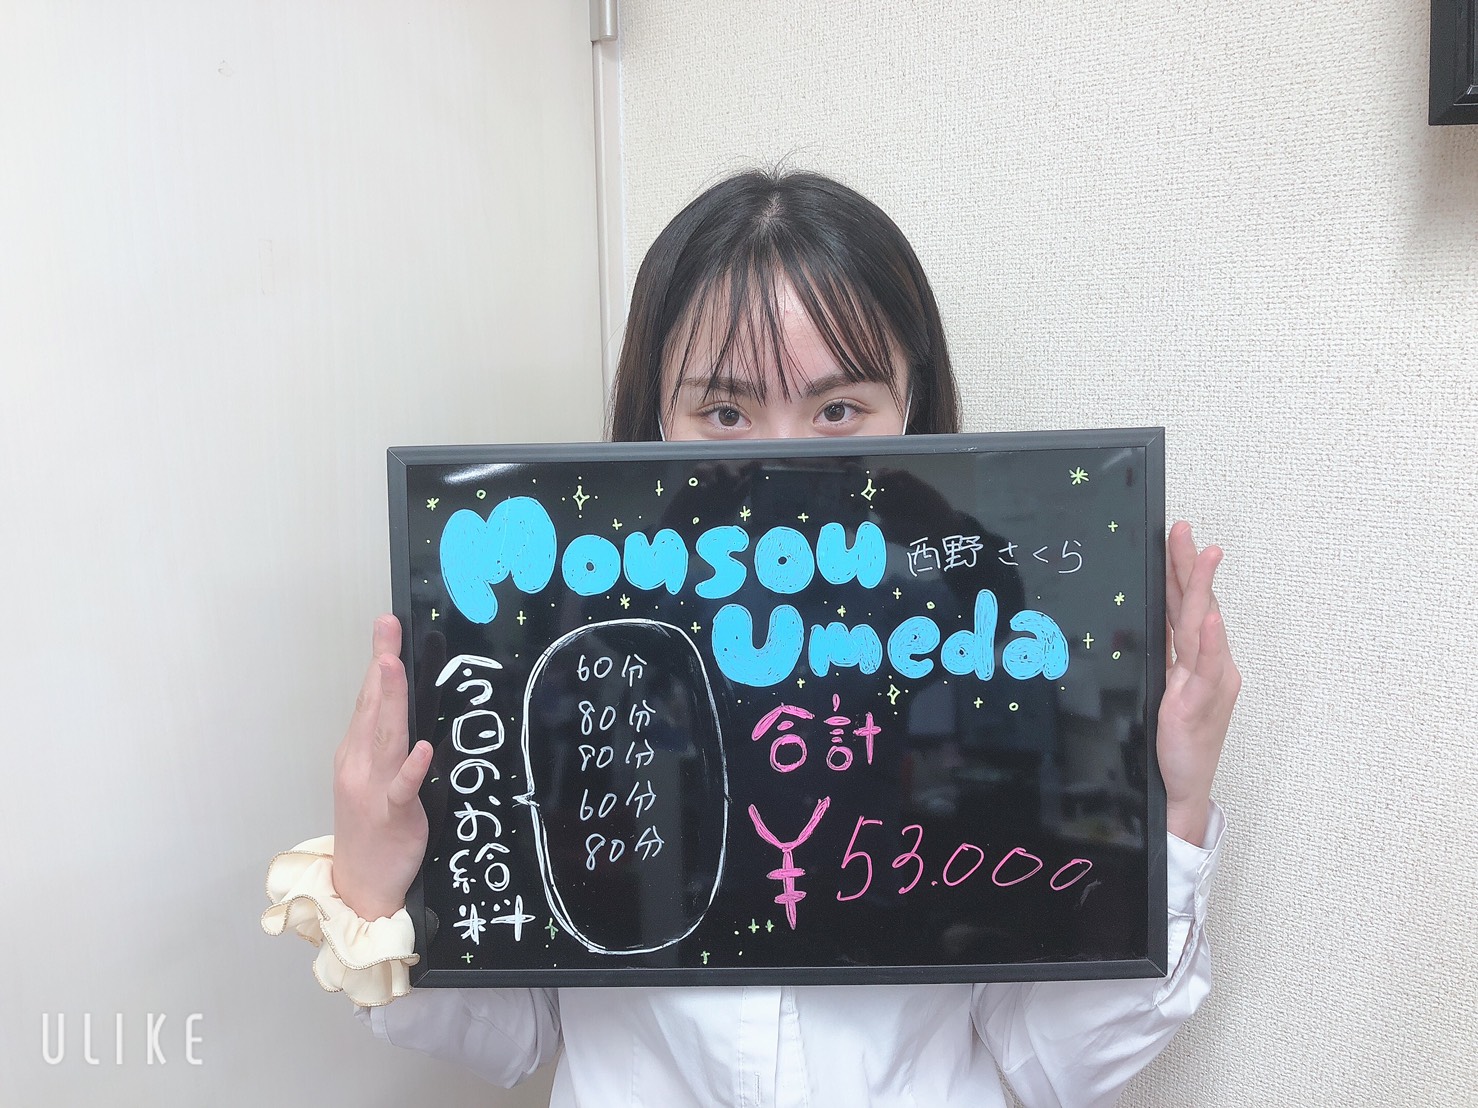 Mousou
西野さくら
Umeda
今日のお給料
60分
80分
80分
60分
80分
合計
¥53.000
ULIKE